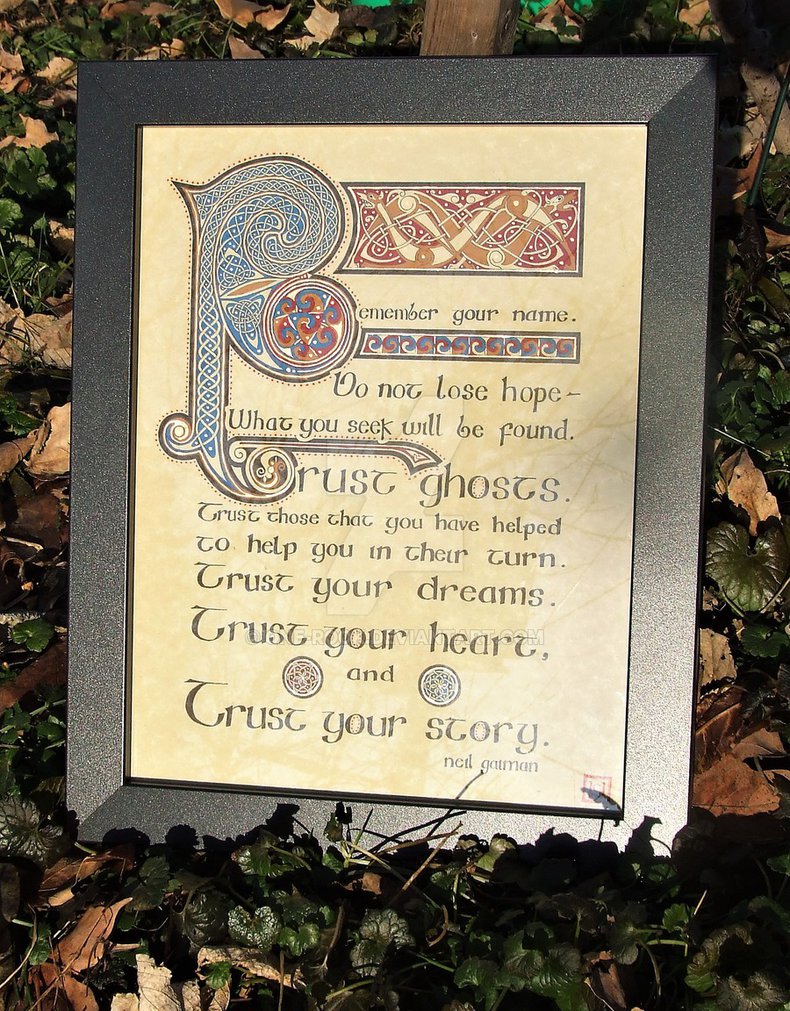 Remember your name.
Do not lose hope–
What you seek will be found.
Trust ghosts.
Trust those that you have helped
to help you in their turn.
Trust your dreams.
Trust your heart,
and
Trust your story.
neil gaiman